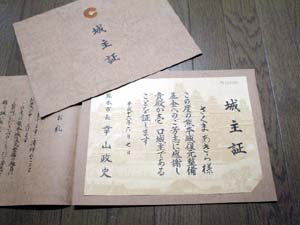 城主証
城主証
さくまあきら様
この度の熊本城復元整備
基金へのご芳志に感謝し
貴殿が壱口城主である
ことを証します
平成十六年六月七日
熊本市長 幸山政史
お礼